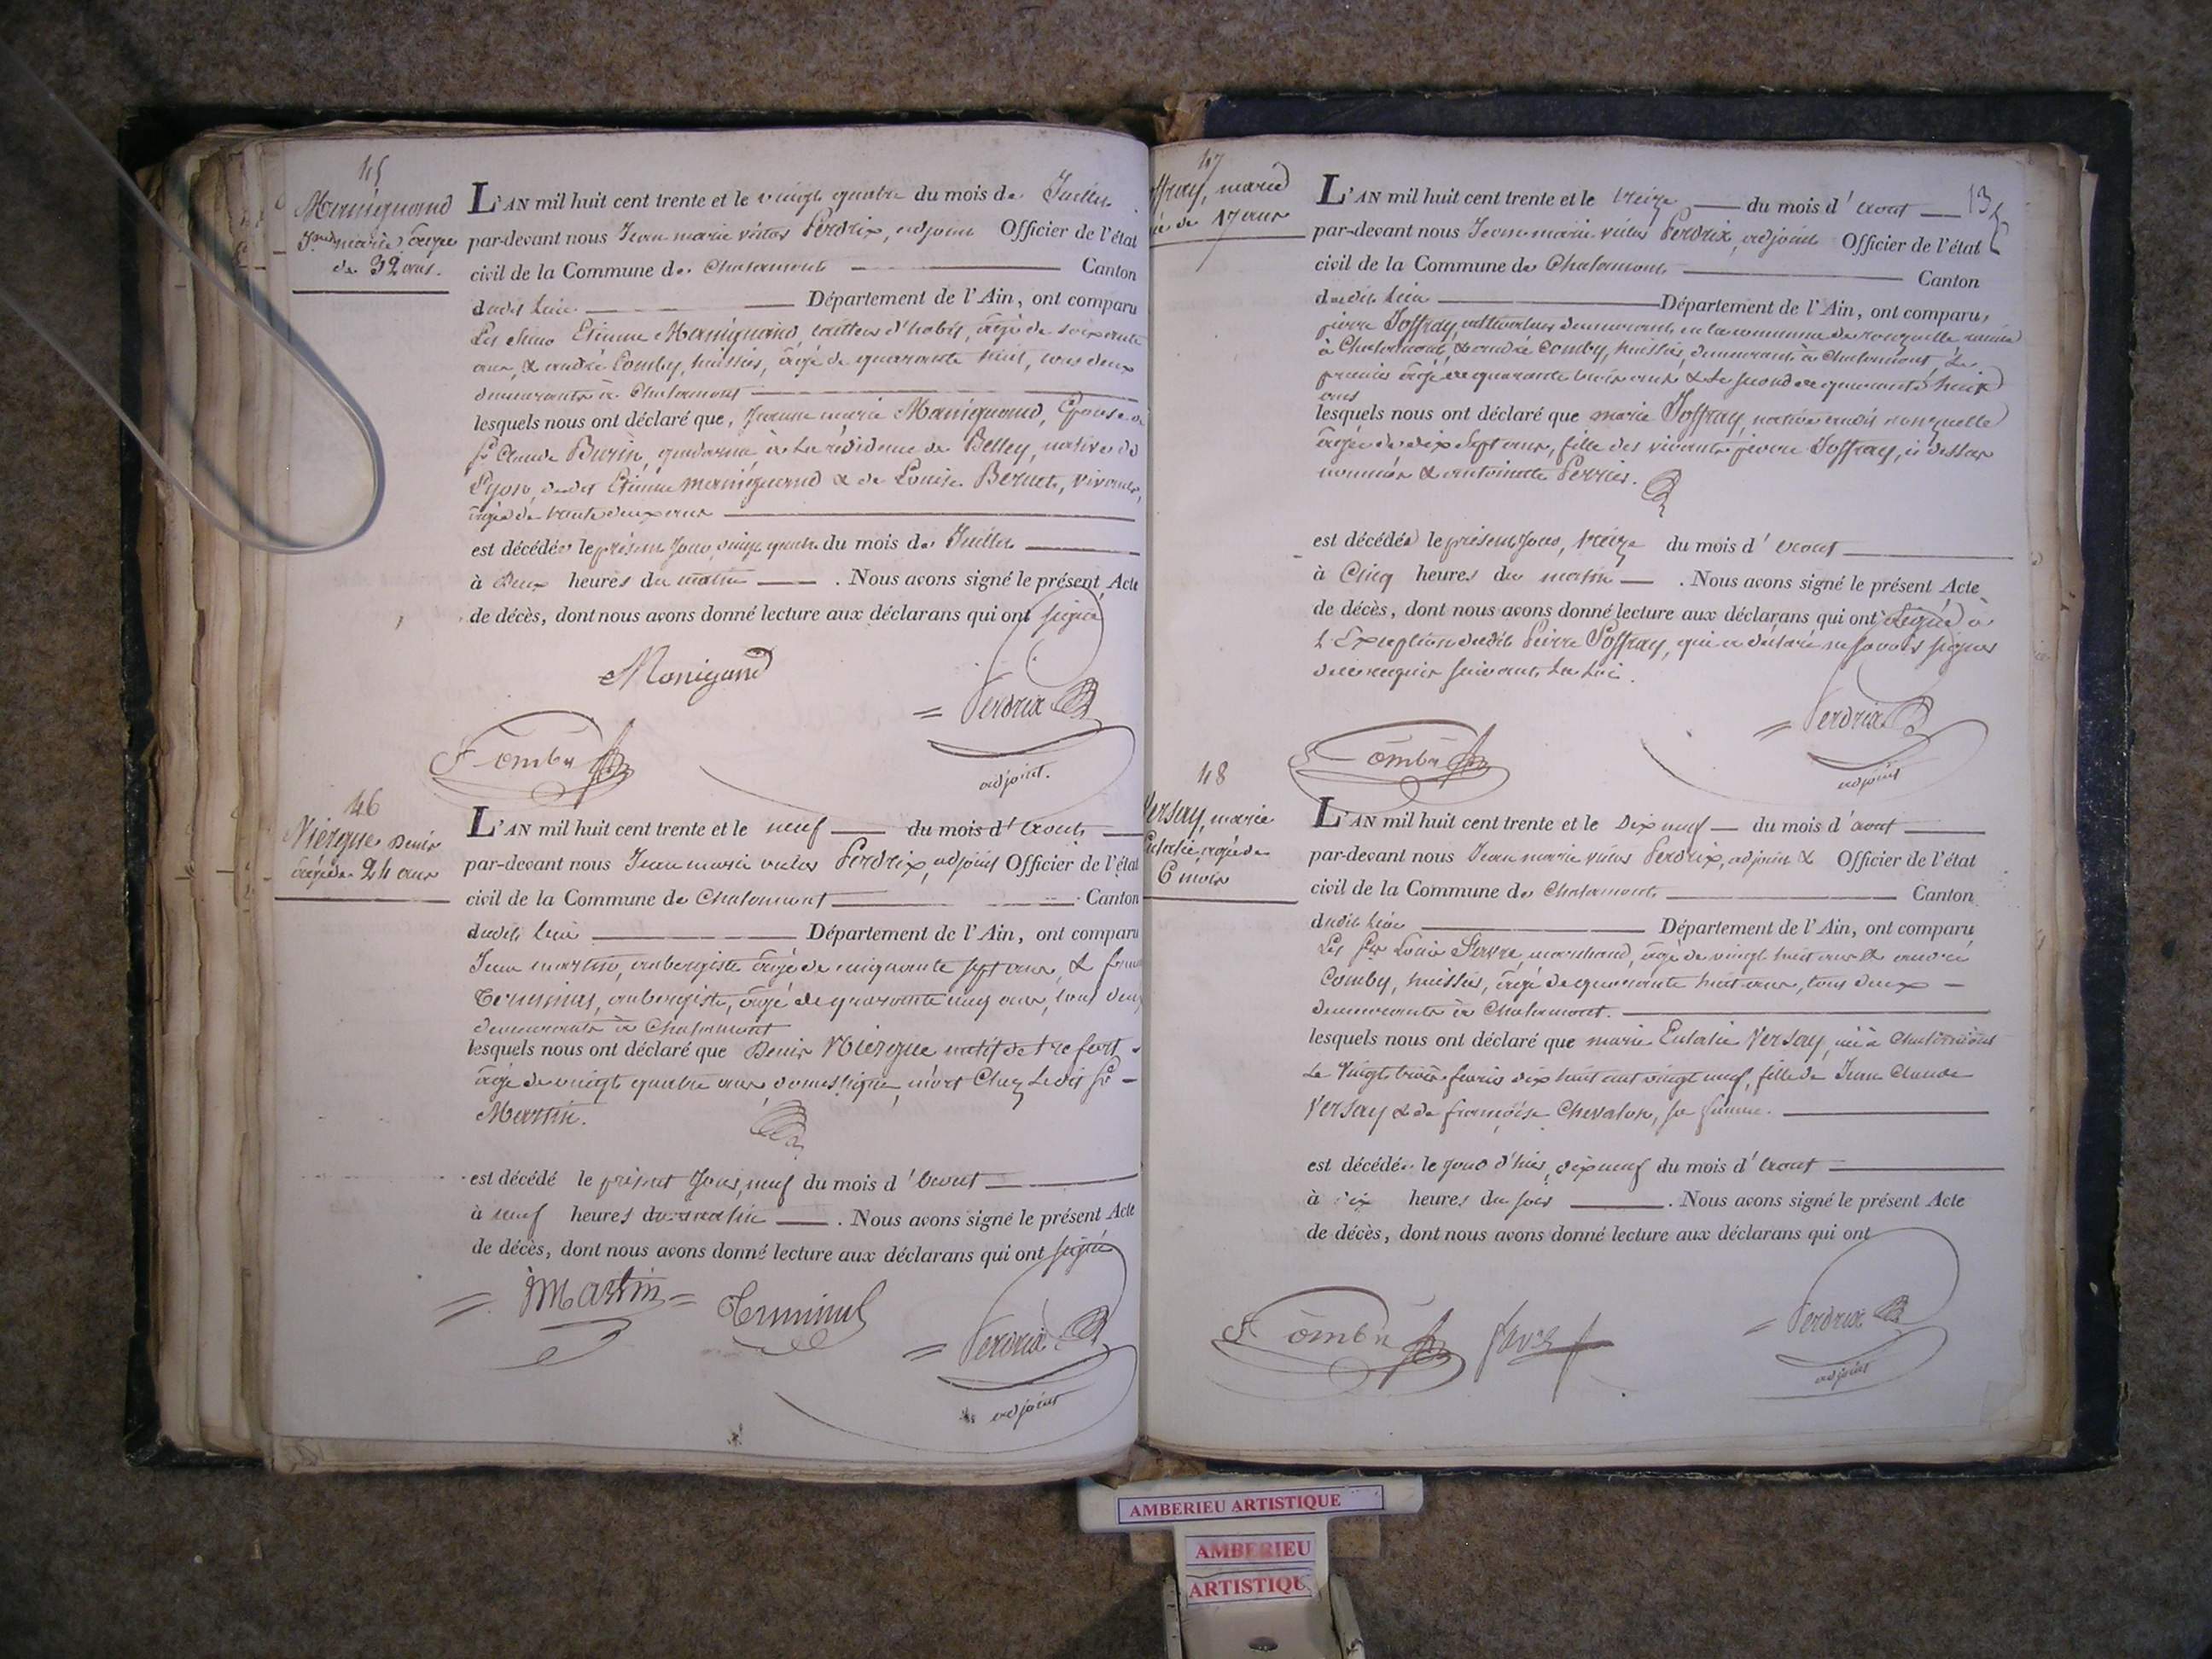 45
Manigand
Jne marie âgée
de 32 ans.
L'AN mil huit cent trente et le vingt quatre du mois de Juillet
par-devant nous Jean marie victor Perdrix, adjoint Officier de l'état
civil de la Commune de Chalamont Canton
dudit lieu Département de l'Ain, ont comparu
Les Etienne Manigand, tailleur d'habit, âgé de soixante
ans, & andré Comby, huissier, âgé de quarante huit, tous deux
demeurants à Chalamont
lesquels nous ont déclaré que, Jeanne marie Manigand, Epouse de
Sr Claude Burin, gendarme à la résidence de Belley, native de
Lyon, dudit Etienne Manigand & de Louise Bernet, vivants,
âgée de trente deux ans
est décédée le présent Jour, vingt quatre du mois de Juillet
à Deux heures du matin . Nous avons signé le présent Acte
de décès, dont nous avons donné lecture aux déclarans qui ont signé
Manigand
Perdrix
Comby
adjoint.
46
Niergue Denis
âgé de 24 ans
L'AN mil huit cent trente et le neuf du mois d'Aout
par-devant nous Jean marie victor Perdrix, adjoint Officier de l'état
civil de la Commune de Chalamont Canton
dudit lieu Département de l'Ain, ont comparu
Jean martin, aubergiste âgé de cinquante sept ans, &
aubergiste, âgé de quarante cinq ans, tous deux
demeurants à Chalamont
lesquels nous ont déclaré que Denis Niergue natif de tre fort
âgé de vingt quatre ans, domestique, mort Chez Ledit Sr
Martin.
est décédé le présent Jour, neuf du mois d'Aout
à neuf heures du matin . Nous avons signé le présent Acte
de décès, dont nous avons donné lecture aux déclarans qui ont signé
Martin
Perdrix
adjoint
47
ffray, marie
ée de 17 ans
L'AN mil huit cent trente et le treize du mois d'Aout 13
par-devant nous Jean marie victor Perdrix, adjoint Officier de l'état
civil de la Commune de Chalamont Canton
dudit lieu Département de l'Ain, ont comparu,
pierre Joffray, cultivateur demeurant en la commune de ronzuelle réunie
à Chalamont, & andré Comby, huissier, demeurants à Chalamont, le
premier âgé de quarante trois ans & le second de quarante huit
ans
lesquels nous ont déclaré que marie Joffray, native audit ronzuelle
âgée de dix Sept ans, fille des vivants pierre Joffray, ci dessus
nommé & antoinette Perrier.
est décédée le présent Jour, treize du mois d'Aout
à Cinq heures du matin . Nous avons signé le présent Acte
de décès, dont nous avons donné lecture aux déclarans qui ont signé à
L'Exception dudit Peirre Joffray, qui a déclaré ne savoir signer
de ce requis suivant la Loi.
Perdrix
Comby
adjoint
48
Versay, marie
Eulalie âgée de
6 mois
L'AN mil huit cent trente et le Dix neuf du mois d'aout
par-devant nous Jean marie victor Perdrix, adjoint & Officier de l'état
civil de la Commune de Chalamont Canton
dudit lieu Département de l'Ain, ont comparu
Les Sr Louis Favre, marchand, âgé de vingt huit ans & andré
Comby, huissier, âgé de quarante huit ans, tous deux
demeurants à Chalamont.
lesquels nous ont déclaré que marie Eulalie Versay, née à Chalamont
Le Vingt trois fevrier dix huit cent vingt neuf, fille de Jean Claude
Versay & de françoise Chevalon, sa femme.
est décédée le Jour d'hier, dix neuf du mois d'Aout
à heures du soir . Nous avons signé le présent Acte
de décès, dont nous avons donné lecture aux déclarans qui ont
Comby
Perdrix
adjoint
AMBERIEU ARTISTIQUE
AMBERIEU
ARTISTIQU